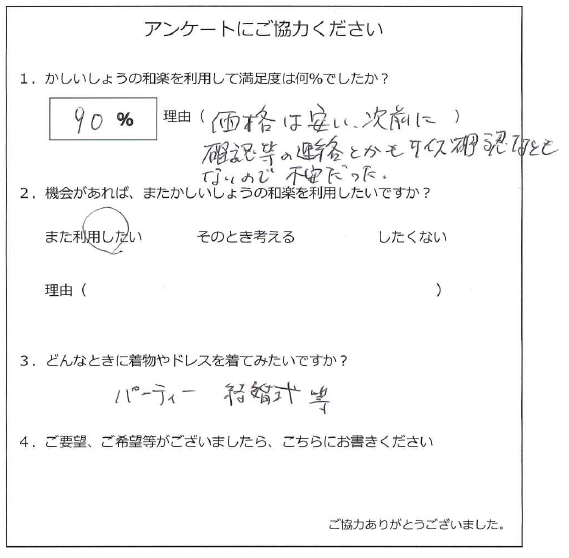 アンケートにご協力ください
1．かしいしょうの和楽を利用して満足度は何%でしたか？
90 % 理由（価格は安い、次前に）
確認等の連絡とかもサイズ確認なども
ないので 不安だった.
2．機会があれば、またかしいしょうの和楽を利用したいですか？
また利用したい そのとき考える したくない
理由（ ）
3．どんなときに着物やドレスを着てみたいですか？
パーティー 結婚式 等
4．ご要望、ご希望等がございましたら、こちらにお書きください
ご協力ありがとうございました。